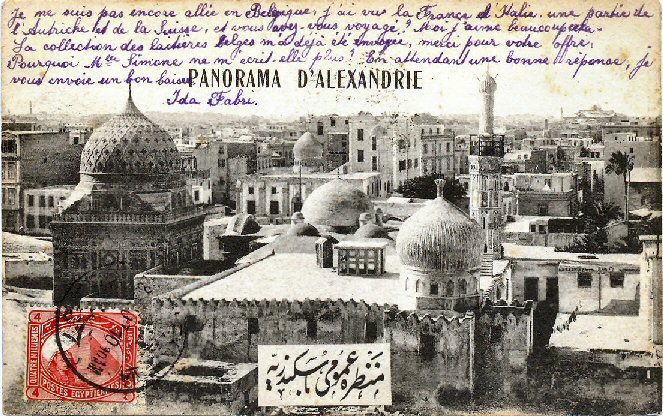 Je ne suis pas encore allée en Belgique, j'ai vu la France, l'Italie, une partie de
l'Autriche et de la Suisse, et vous avez-vous voyagé? Moi j'aime beaucoup cela.
La collection des laitières belges m'a déjà été envoyée, merci pour votre offre.
Pourquoi Mlle Simone ne m'écrit elle plus? En attendant une bonne réponse, je
vous envoie un bon baiser
PANORAMA D'ALEXANDRIE
Ida Fabri.
منظرة عمومي باسكندرية
4 4
QUATRE MILLIEMES
POSTES EGYPTIENNES